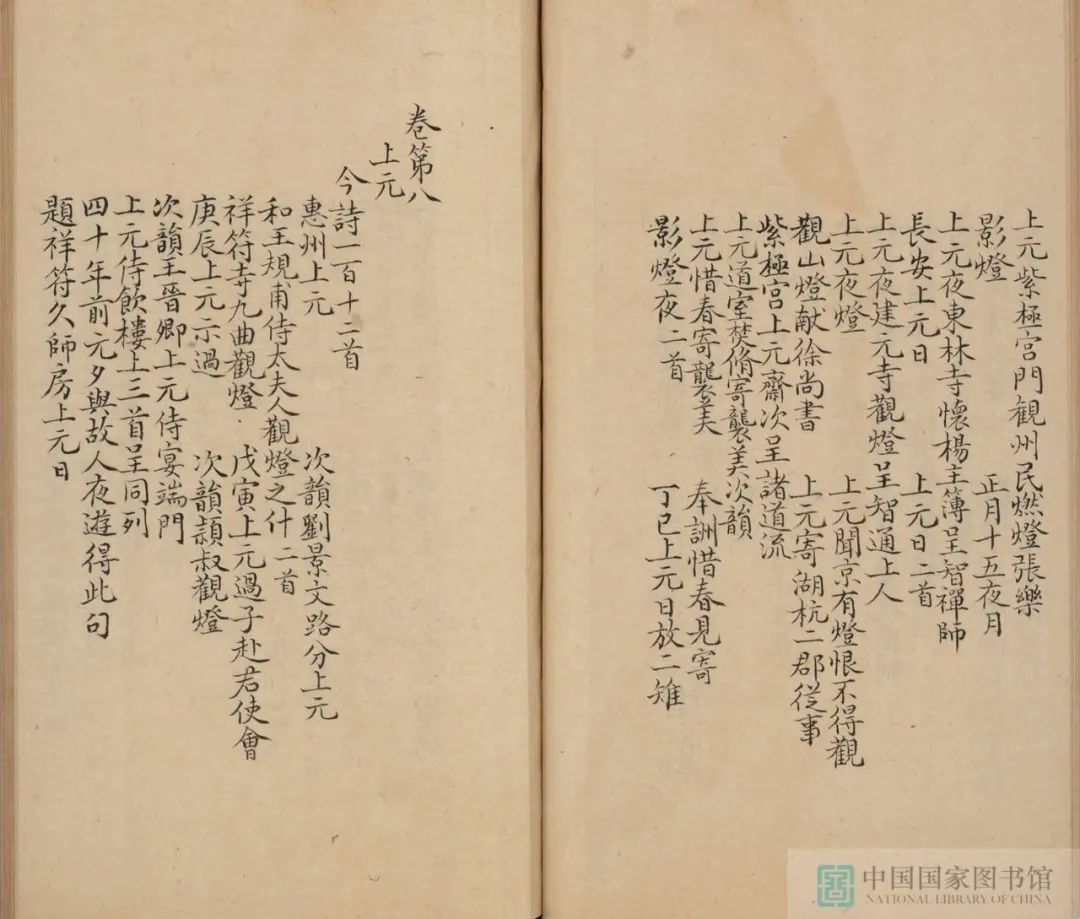 上元紫極宮門観州民燃燈張樂
影燈 正月十五夜月
上元夜東林寺懷楊主簿呈智禪師
長安上元日 上元日二首
上元夜建元寺觀燈呈智通上人
上元夜燈 上元聞京有燈恨不得觀
觀山燈献徐尚書 上元寄湖杭二郡從事
紫極宮上元齋次呈諸道流
上元道室焚脩寄襲美次韻
上元惜春寄襲美 奉詶惜春見寄
影燈夜二首 丁巳上元日放二雉
卷第八
上元
今詩一百十二首
惠州上元 次韻劉景文路分上元
和王規甫侍太夫人觀燈之什二首
祥符寺九曲觀燈 戊寅上元過子赴君使會
庚辰上元示過 次韻頴叔觀燈
次韻王晉卿上元侍宴端門
上元侍飲樓上三首呈同列
四十年前元夕與故人夜遊得此句
題祥符久師房上元日
中国国家图书馆
NATIONAL LIBRARY OF CHINA